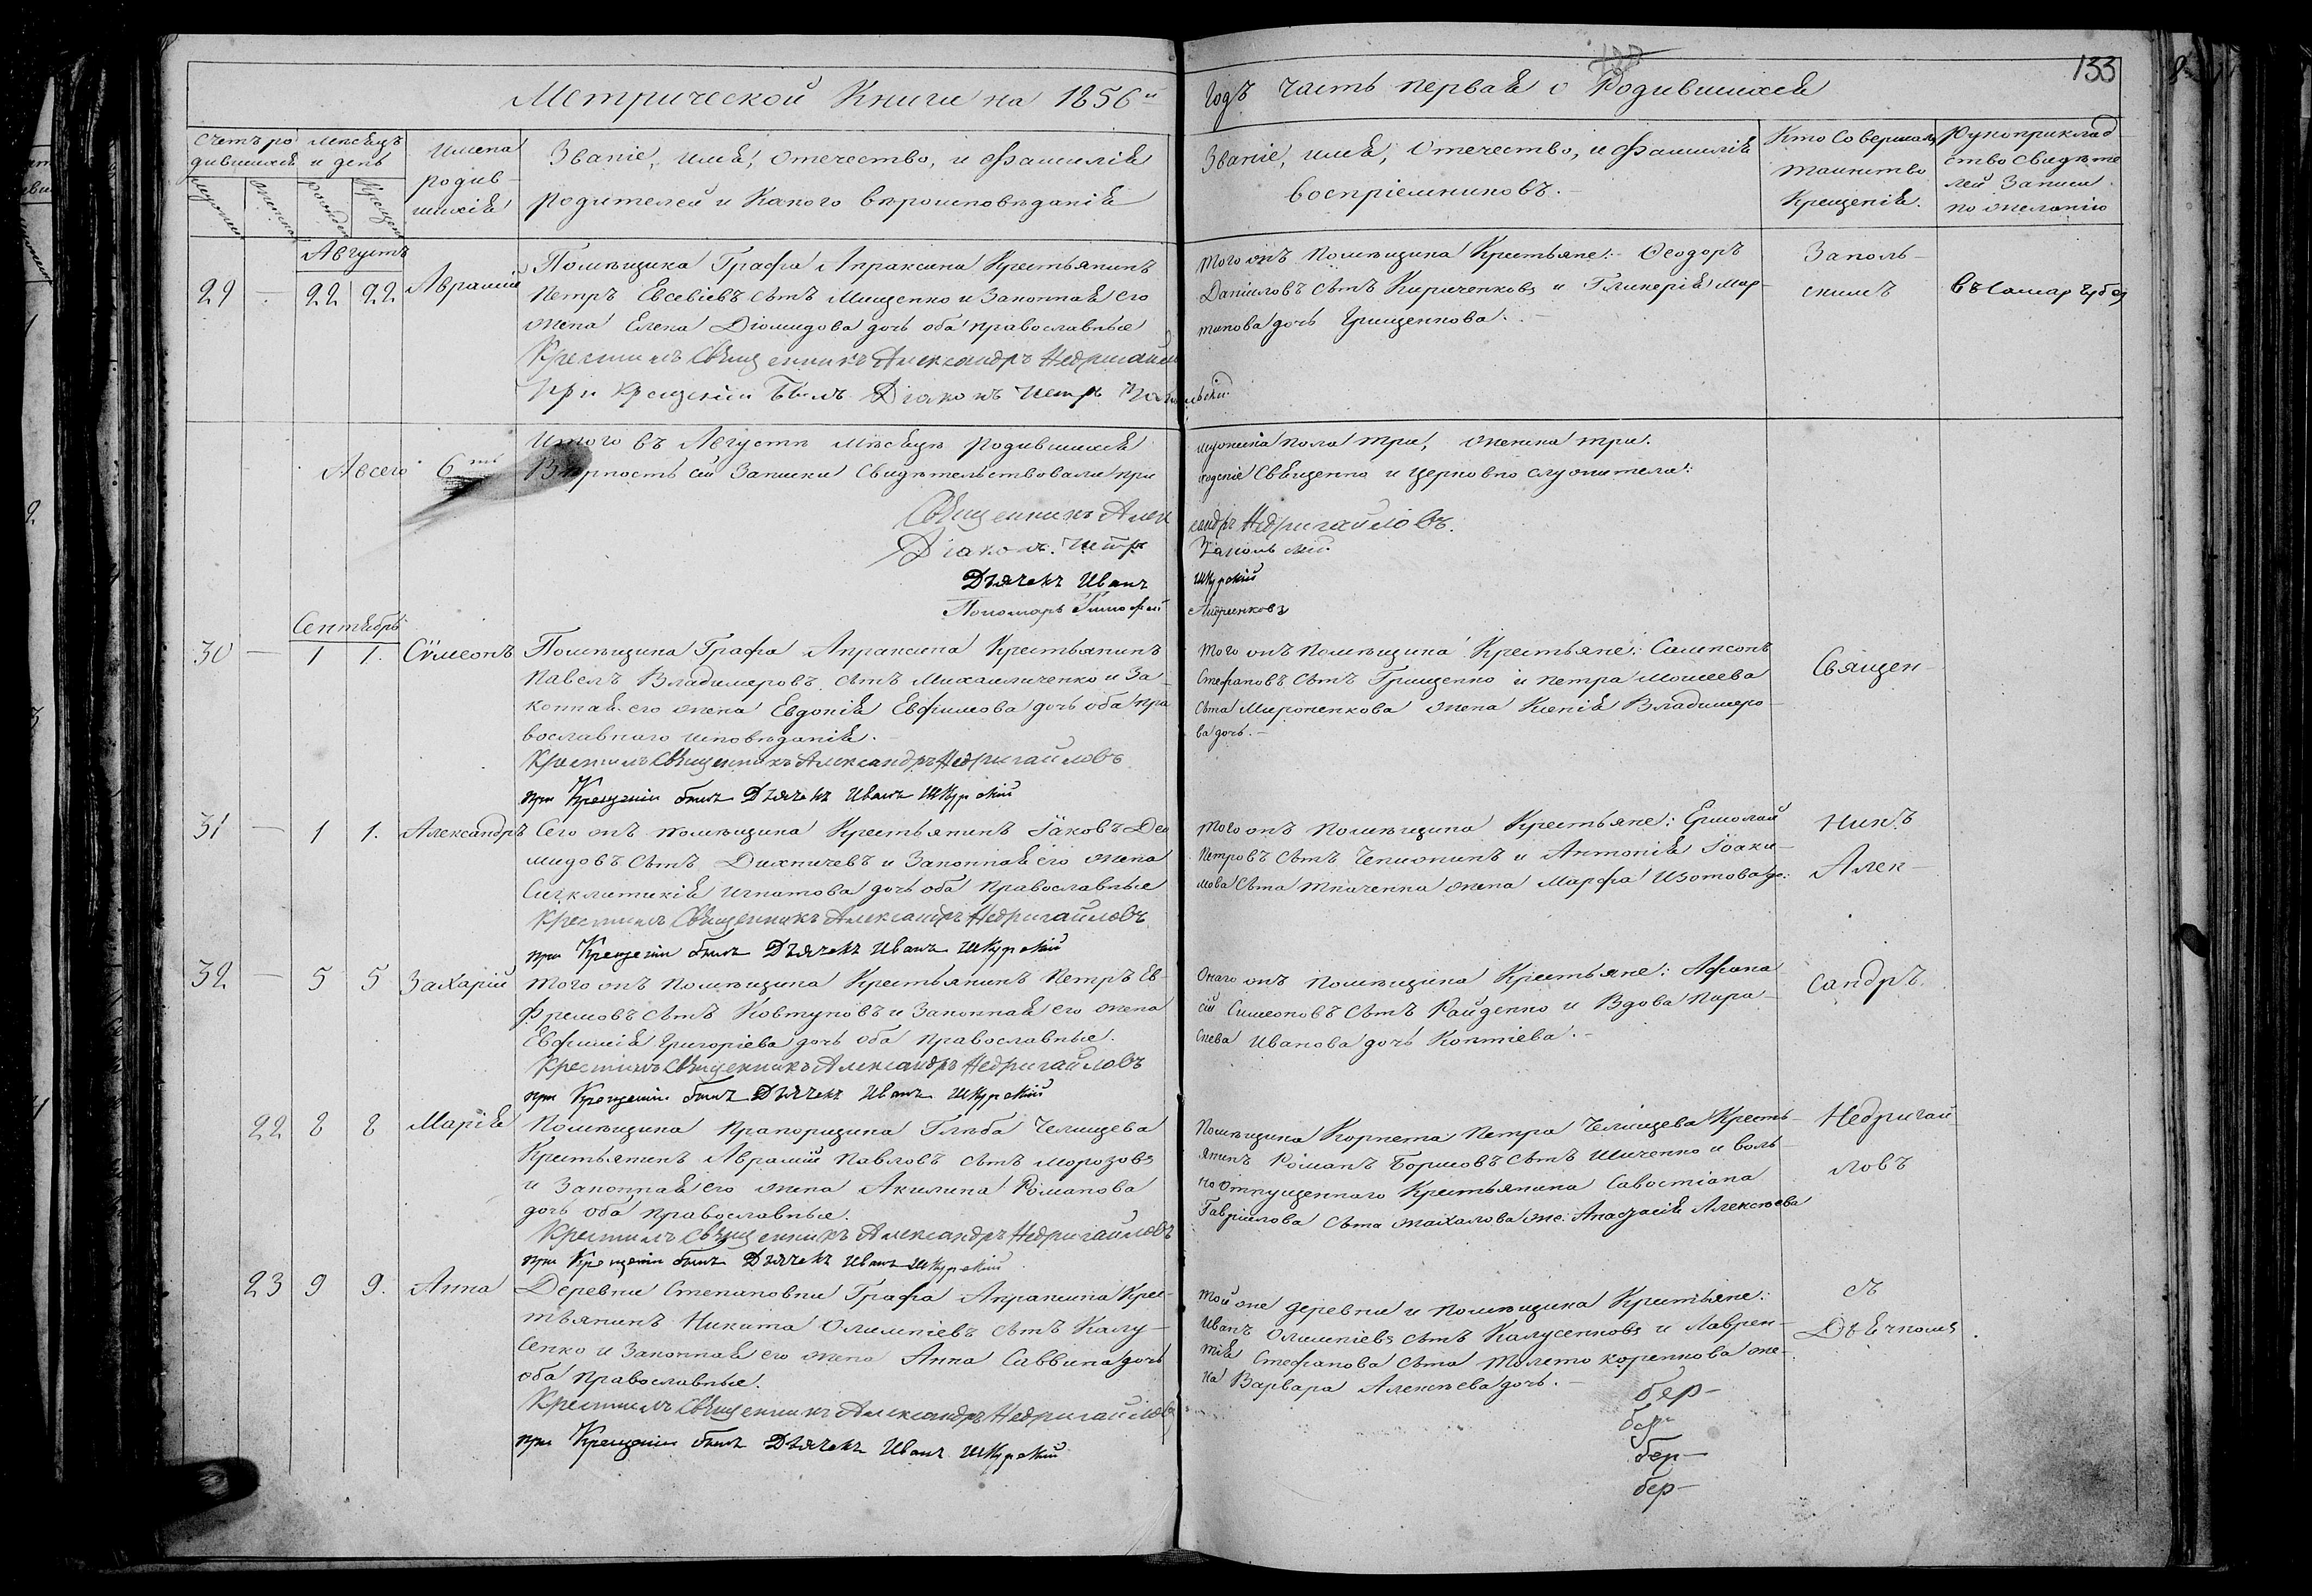 133
Метрической Книги на 1856й Годъ часть первая о Родившихся
Счетъ родившихся
мѣсяцъ и день
Имена родившихся
Званіе, имя, отечество, и фамилія
родителей и Какого вѣроисповѣданія
Званіе, имя, отечество, и фамилія
воспріемниковъ.
Кто Совершалъ
таинство
Крещенія.
Рукоприклад
ство Свидѣте
лей Записи
по желанію
Августъ
29 - 22 22 Аврамій
Помѣщика Графа Апраксина Крестьянинъ
Петръ Евсевіевъ сынъ Мищенко и Законная его
жена Елена Діомидова дочь оба православные
Крестилъ Священникъ Александръ Недригайловъ
При Крещеніи былъ Діаконъ Петръ Запольскій
Того жъ Помѣщика Крестьяне: Ѳеодоръ
Даніиловъ сынъ Кириченковъ и Гликерія Мар-
тинова дочь Грищенкова.
Заполь-
скимъ
Итого въ Августѣ мѣсяцѣ родившихся мужеска пола три, женска три.
А всего 6ть
Вѣрность сей Записки Свидѣтельствовали приходскіе Священно и церковно служители:
Священникъ Александръ Недригайловъ.
Діаконъ Петръ Запольскій
Дьячекъ Иванъ Шкурскій
Пономарь Тимофей
Сентябрь
30 - 1 1. Сѵмеонъ
Помѣщика Графа Апраксина Крестьянинъ
Павелъ Владимеровъ сынъ Михаиличенко и За-
конная его жена Евдокія Евфимова дочь оба пра
вославнаго исповѣданія.
Крестилъ Священникъ Александръ Недригайловъ
при Крещеніи былъ Дьячекъ Иванъ Шкурскій
Того жъ Помѣщика Крестьяне: Сампсонъ
Стефановъ сынъ Грищенко и Петра Моисеева
сына Мироненкова жена Ксенія Владимеро-
ва дочь.-
Священ-
31 - 1 1. Александръ
Сего жъ помѣщика Крестьянинъ Іаковъ Део
мидовъ сынъ и Законная его жена
Сигклитикія Игнатова дочь оба православные
Крестилъ Священникъ Александръ Недригайловъ
при Крещеніи былъ Дьячекъ Иванъ Шкурскій
Того жъ Помѣщика Крестьяне: Ермолай
Петровъ сынъ и Антонія Іоаки-
мова сына Ткаченка жена Марфа Изотова до:
никъ
Алек-
32 - 5 5 Захарій
Того жъ Помѣщика Крестьянинъ Петръ Еф
ремовъ сынъ Ковтуновъ и Законная его жена
Евфимія Григоріева дочь оба православные.
Крестилъ Священникъ Александръ Недригайловъ
при Крещеніи былъ Дьячекъ Иванъ Шкурскій
Онаго жъ помѣщика Крестьяне: Афана
сій Симеоновъ сынъ Райденко и Вдова Пара-
скева Иванова дочь Коптіева.-
сандръ
22 8 8 Марія
Помѣщика Прапорщика Глѣба Челищева
Крестьянинъ Аврамій Павловъ сынъ Морозовъ
и Законная его жена Акилина Романова
дочь оба православные.
Крестилъ Священникъ Александръ Недригайловъ
при Крещеніи былъ Дьячекъ Иванъ Шкурскій
Помѣщика Корнета Петра Челищева Кресть-
янинъ Романъ Борисовъ сынъ и воль
но отпущеннаго Крестьянина Савостіана
Гавріилова сына жахалова же: Анастасія Алексѣева
Недригай
ловъ
23 9 9. Анна
Деревни Степановки Графа Апраксина Крес-
тьянинъ Никита Олимпіевъ сынъ Калу-
сенко и Законная его жена Анна Саввина дочь
оба православные.
Крестилъ Священникъ Александръ Недригайловъ
при Крещеніи былъ Дьячекъ Иванъ Шкурскій
Той же деревни и помѣщика Крестьяне:
Иванъ Олимпіевъ сынъ Калусенковъ и Лаврен-
тія Стефанова сына Толстокоренкова же-
на Варвара Алексѣева дочь.-
съ
Дьячкомъ
бер-
бер-
бер-
бер-